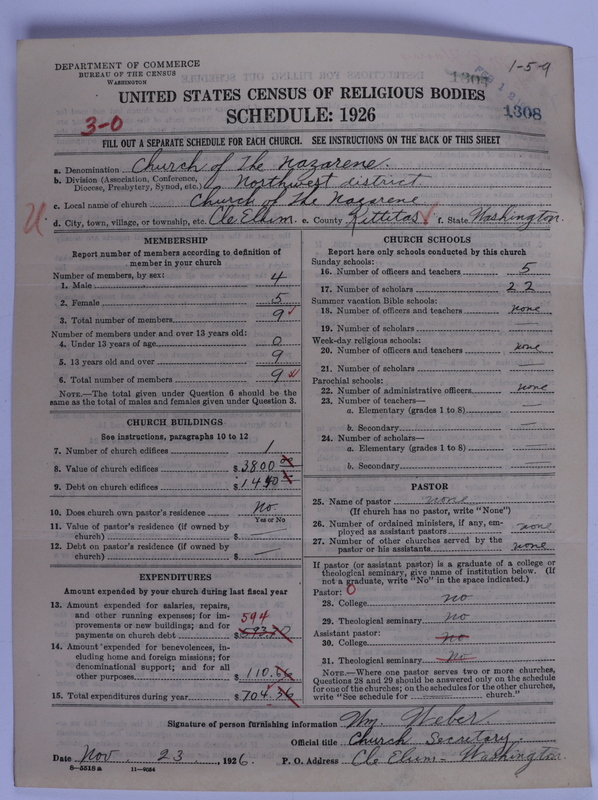 DEPARTMENT OF COMMERCE
BUREAU OF THE CENSUS
WASHINGTON
1-5-9
1304
1308
UNITED STATES CENSUS OF RELIGIOUS BODIES
SCHEDULE: 1926
3-0
FILL OUT A SEPARATE SCHEDULE FOR EACH CHURCH. SEE INSTRUCTIONS ON THE BACK OF THIS SHEET
a. Denomination Church of The Nazarene.
b. Division (Association, Conference, Diocese, Presbytery, Synod, etc.) Northwest district
c. Local name of church Church of The Nazarene
d. City, town, village, or township, etc. Cle Elum. e. County Kittitas f. State Washington.
MEMBERSHIP
Report number of members according to definition of
member in your church
Number of members, by sex:
1. Male 4
2. Female 5
3. Total number of members 9
Number of members under and over 13 years old:
4. Under 13 years of age 0
5. 13 years old and over 9
6. Total number of members 9
NOTE.—The total given under Question 6 should be
same as the total of males and females given under Question 3.
CHURCH BUILDINGS
See instructions, paragraphs 10 to 12
7. Number of church edifices 1
8. Value of church edifices $ 3800
9. Debt on church edifices $ 1440
10. Does church own pastor's residence No.
Yes or No
11. Value of pastor's residence (if owned by
church) $ —
12. Debt on pastor's residence (if owned by
church) $ —
EXPENDITURES
Amount expended by your church during last fiscal year
13. Amount expended for salaries, repairs,
and other running expenses; for im-
provements or new buildings; and for
payments on church debt 594 $
14. Amount expended for benevolences, in-
cluding home and foreign missions; for
denominational support; and for all
other purposes $ 110.66
15. Total expenditures during year $ 704.36
CHURCH SCHOOLS
Report here only schools conducted by this church
Sunday schools:
16. Number of officers and teachers 5
17. Number of scholars 22
Summer vacation Bible schools:
18. Number of officers and teachers none
19. Number of scholars —
Week-day religious schools:
20. Number of officers and teachers none
21. Number of scholars —
Parochial schools:
22. Number of administrative officers none
23. Number of teachers—
a. Elementary (grades 1 to 8) —
b. Secondary —
24. Number of scholars—
a. Elementary (grades 1 to 8) —
b. Secondary —
PASTOR
25. Name of pastor none
(If church has no pastor, write "None")
26. Number of ordained ministers, if any, em-
ployed as assistant pastors none
27. Number of other churches served by the
pastor or his assistants none
If pastor (or assistant pastor) is a graduate of a college or
theological seminary, give name of institution below. (If
not a graduate, write "No" in the space indicated.)
Pastor: 0
28. College no
29. Theological seminary no
Assistant pastor:
30. College no
31. Theological seminary no
NOTE.—Where one pastor serves two or more churches,
Questions 28 and 29 should be answered only on the schedule
for one of the churches; on the schedules for the other churches,
write "See schedule for church."
Signature of person furnishing information Wm. Weber.
Official title Church Secretary.
Date Nov. 23, 1926. P. O. Address Cle Elum - Washington.
8—5518 a 11—9054